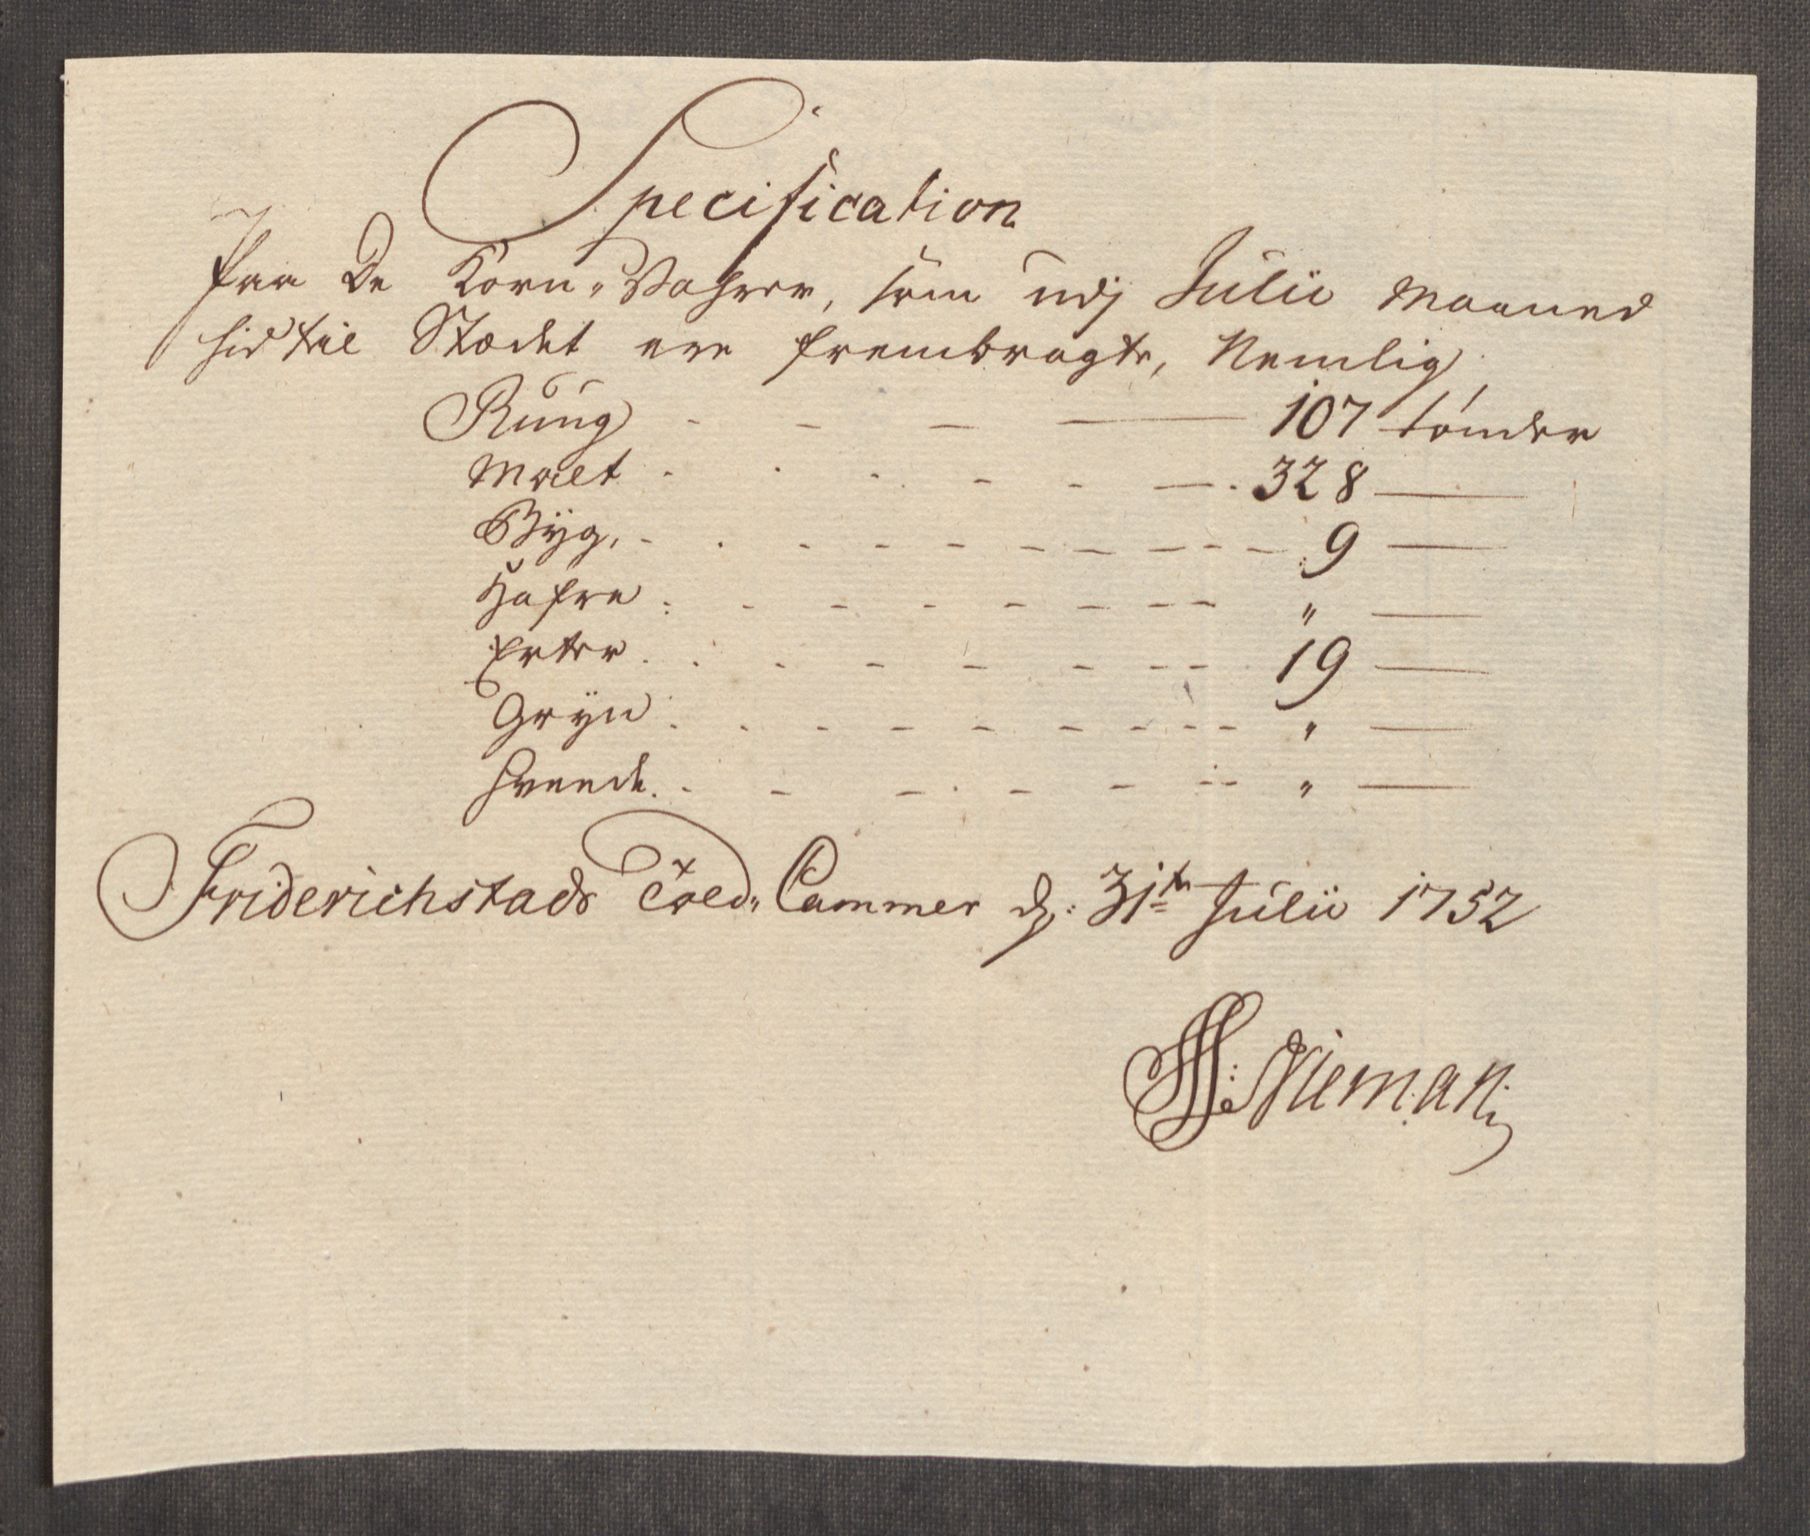 Specification
Paa De Korn-Vahrer, som udj Julii Maaned
hid til Stædet ere frembragte, Nemlig
Rung - - - — 107 tønder
Malt - - - - - — 328 —
Byg, - - - - - - - - - - 9 —
Hafre - - - - - - - - " —
Erter - - - - - - - - 19 —
Gryn - - - - - - - - - " —
Hveede - - - - - - - " —
Friderichstads Told-Cammer d: 31te Julii 1752
Nieman